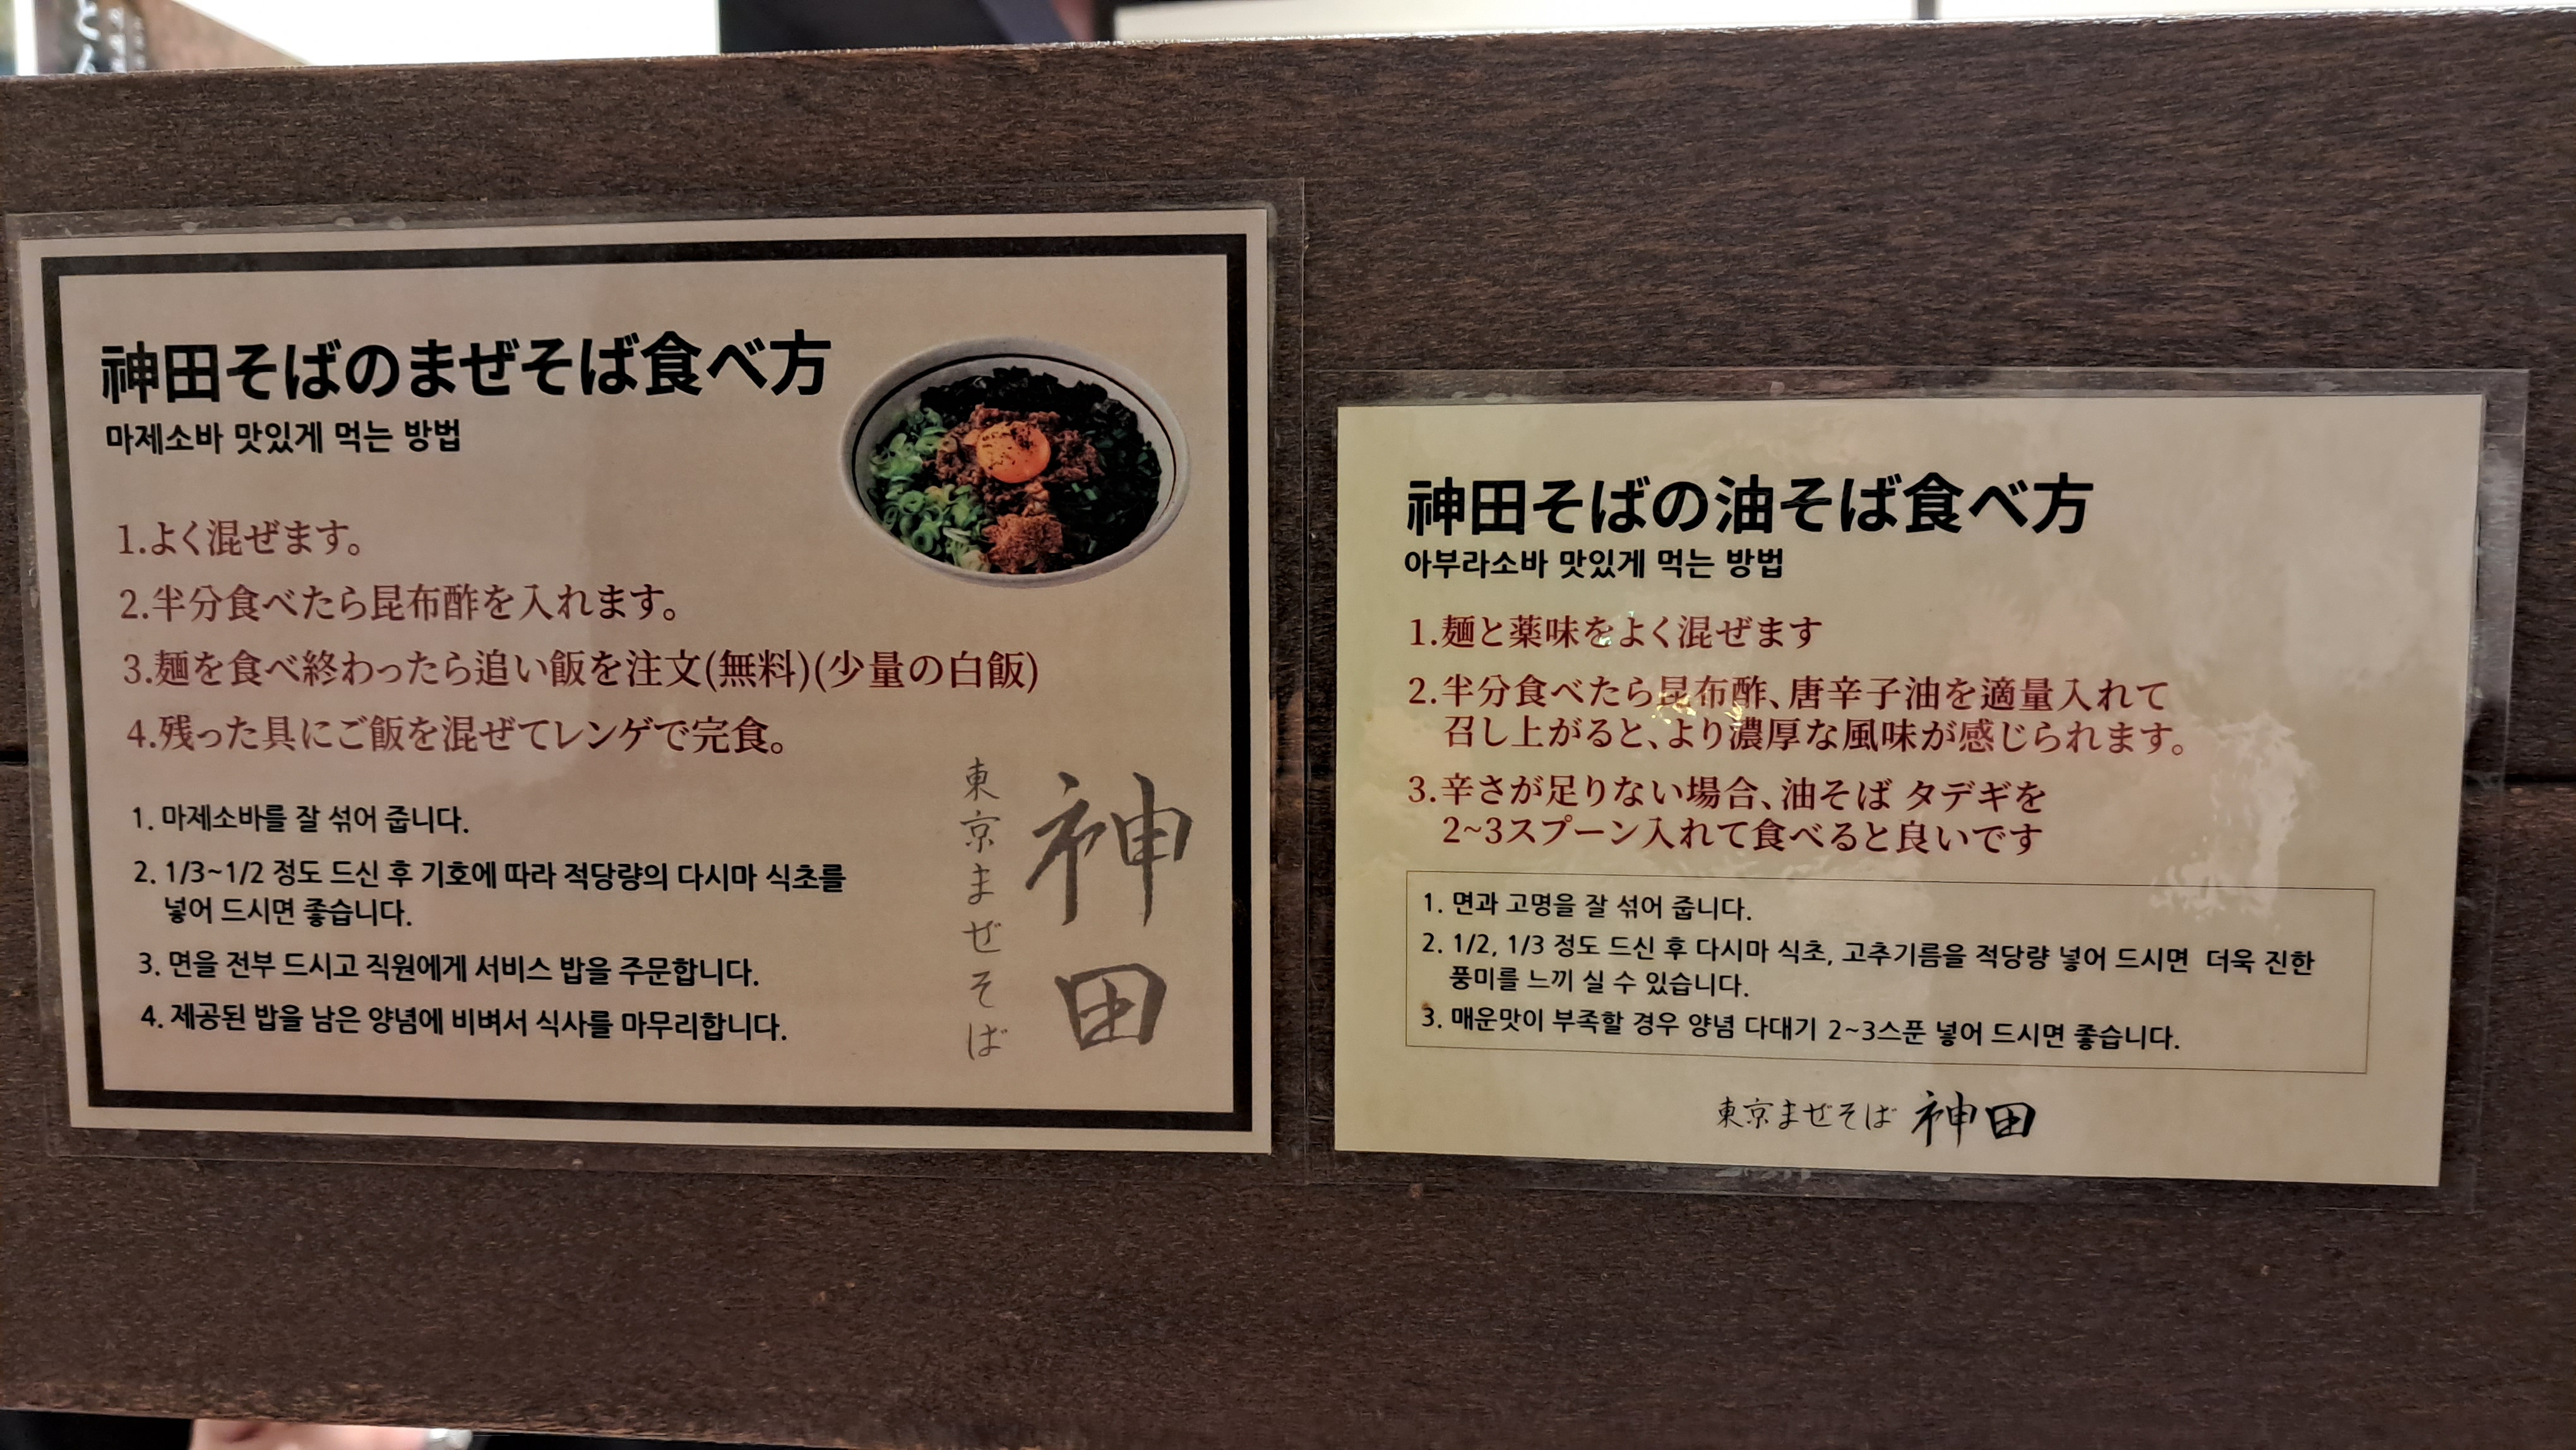 神田そばのまぜそば食べ方
마제소바 맛있게 먹는 방법
1.よく混ぜます。
2.半分食べたら昆布酢を入れます。
3.麺を食べ終わったら追い飯を注文(無料)(少量の白飯)
4.残った具にご飯を混ぜてレンゲで完食。
1. 마제소바를 잘 섞어 줍니다.
2. 1/3~1/2 정도 드신 후 기호에 따라 적당량의 다시마 식초를
넣어 드시면 좋습니다.
3. 면을 전부 드시고 직원에게 서비스 밥을 주문합니다.
4. 제공된 밥을 남은 양념에 비벼서 식사를 마무리합니다.
東京まぜそば
神田
神田そばの油そば食べ方
아부라소바 맛있게 먹는 방법
1.麺と薬味をよく混ぜます
2.半分食べたら昆布酢、唐辛子油を適量入れて
召し上がると、より濃厚な風味が感じられます。
3.辛さが足りない場合、油そば タデギを
2~3スプーン入れて食べると良いです
1. 면과 고명을 잘 섞어 줍니다.
2. 1/2, 1/3 정도 드신 후 다시마 식초, 고추기름을 적당량 넣어 드시면 더욱 진한
풍미를 느끼 실 수 있습니다.
3. 매운맛이 부족할 경우 양념 다대기 2~3스푼 넣어 드시면 좋습니다.
東京まぜそば 神田